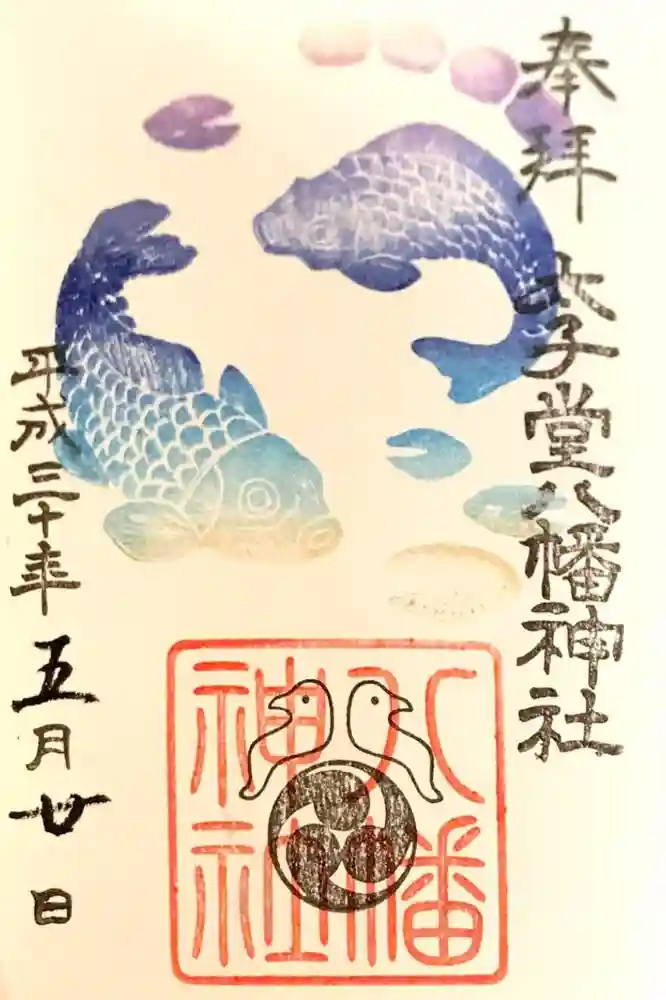 奉拝 太子堂八幡神社
八幡
神社
平成三十年五月廿日